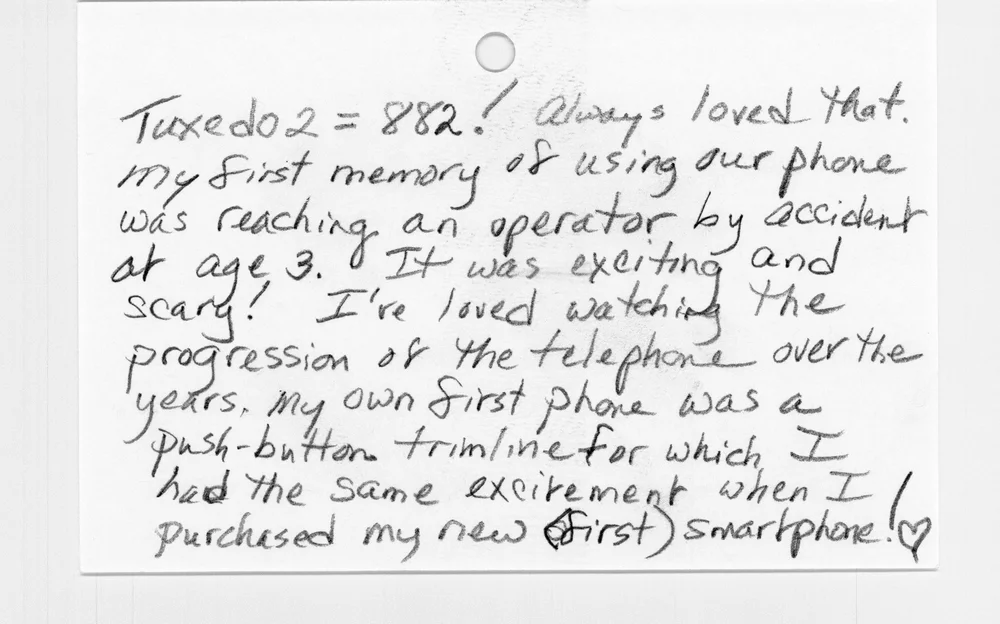 Tuxedo2 = 882! Always loved that.
My first memory of using our phone
was reaching an operator by accident
at age 3. It was exciting and
scary! I've loved watching the
progression of the telephone over the
years. My own first phone was a
push-button trimline for which I
had the same excitement when I
purchased my new (first) smartphone! ♡